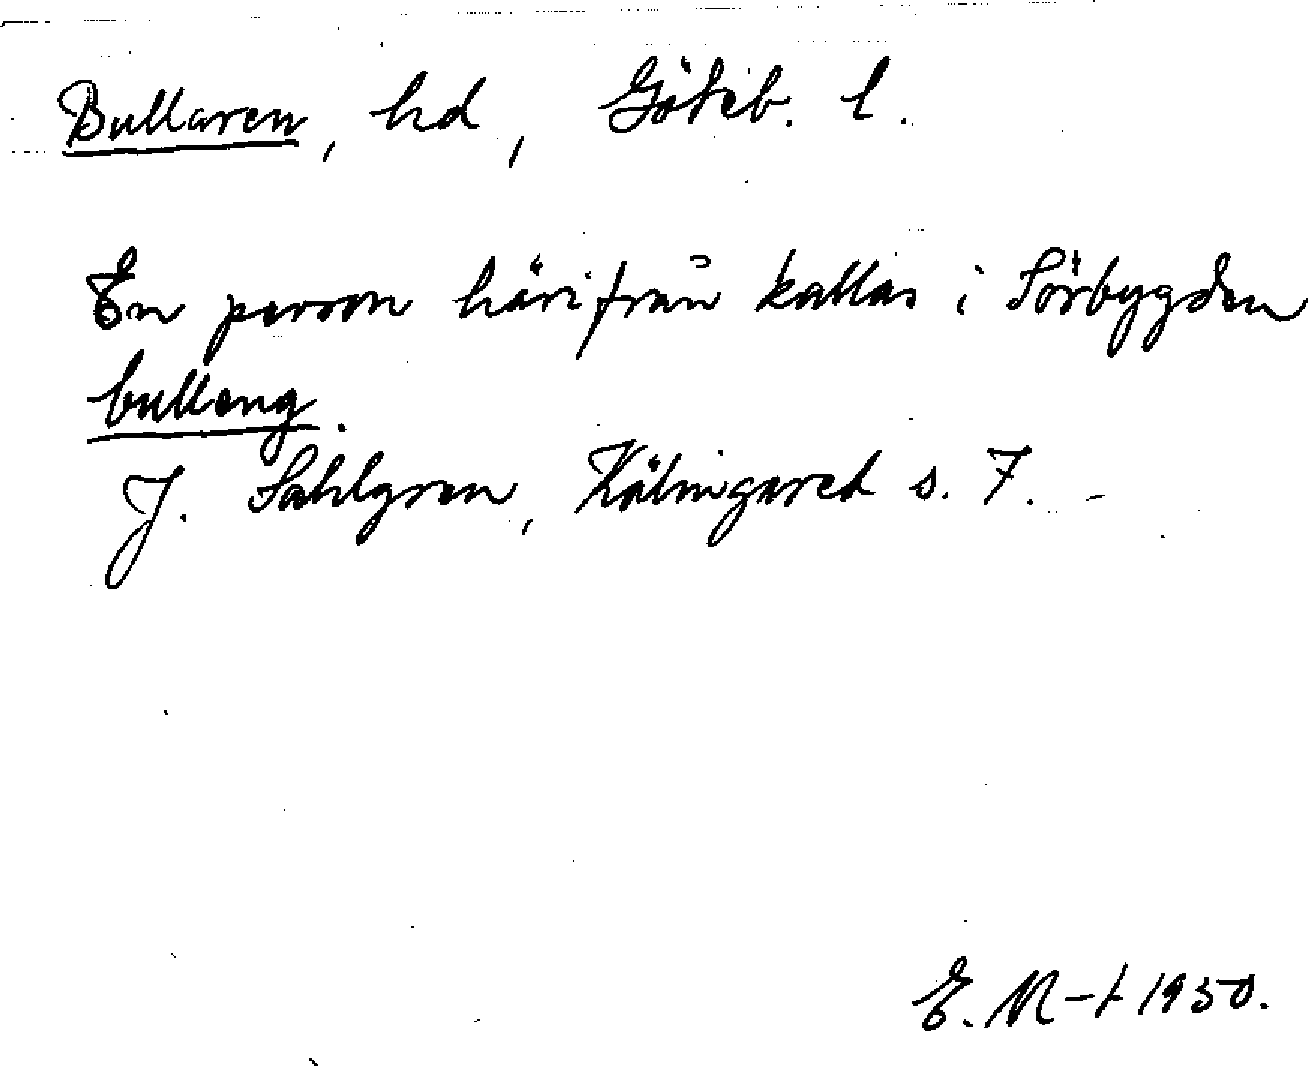 Bullaren, hd, Göteb. l.
En person härifrån kallas i Sörbygden
bulleng.
J. Sahlgren, Kölingared s. 7. -
E. M-t 1950.